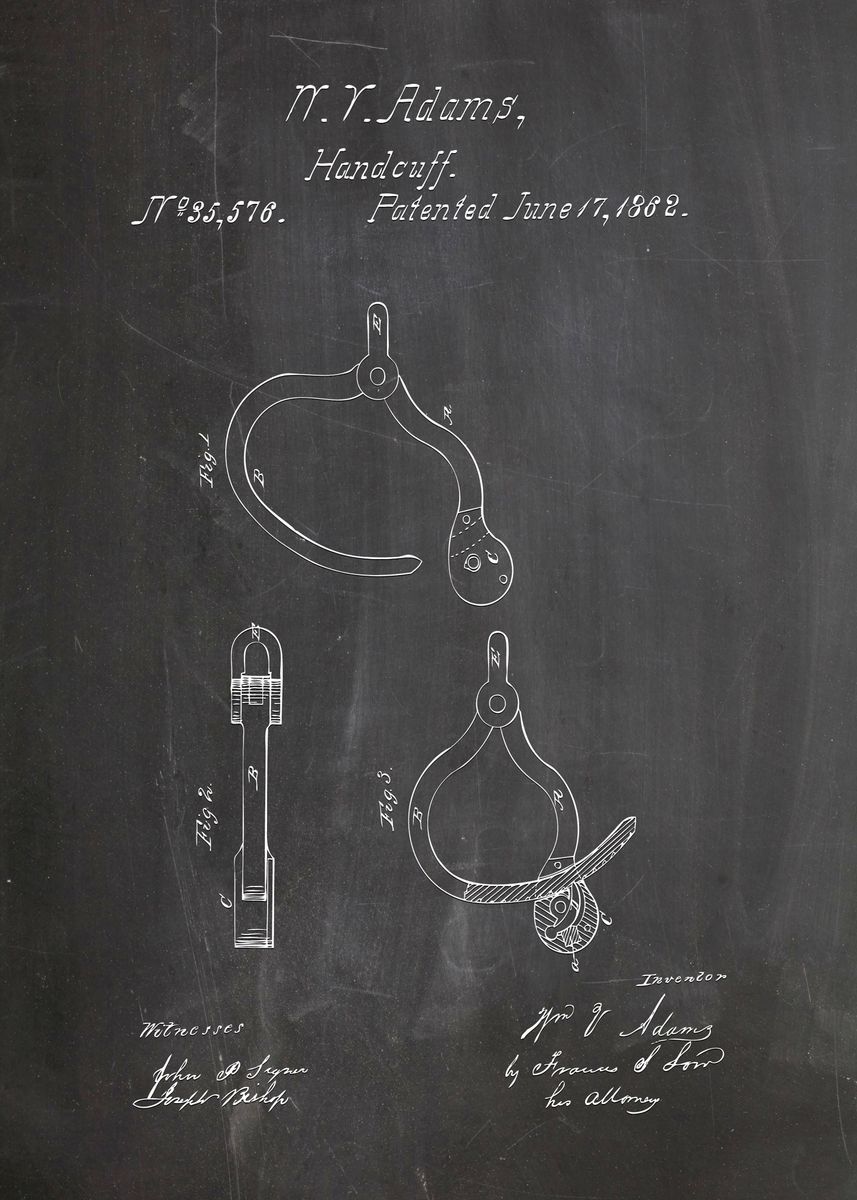 W. V. Adams,
Handcuff.
Nº 35,576. Patented June 17, 1862.
E
A
Fig. 1
B
C
E
E
Fig. 2.
B
Fig. 3.
B
A
C
C
a
Inventor
Witnesses
Wm V Adams
John P
by Frances
Joseph Bishop
his Attorney